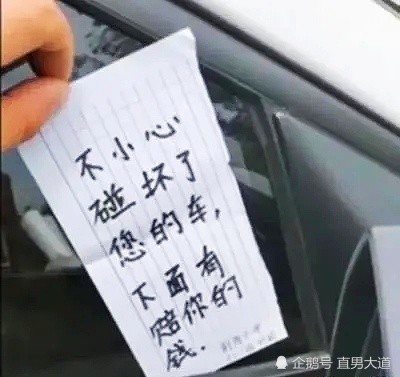 不小心
碰坏了
您的车,
下面有
赔你的
钱.
企鹅号 直男大道